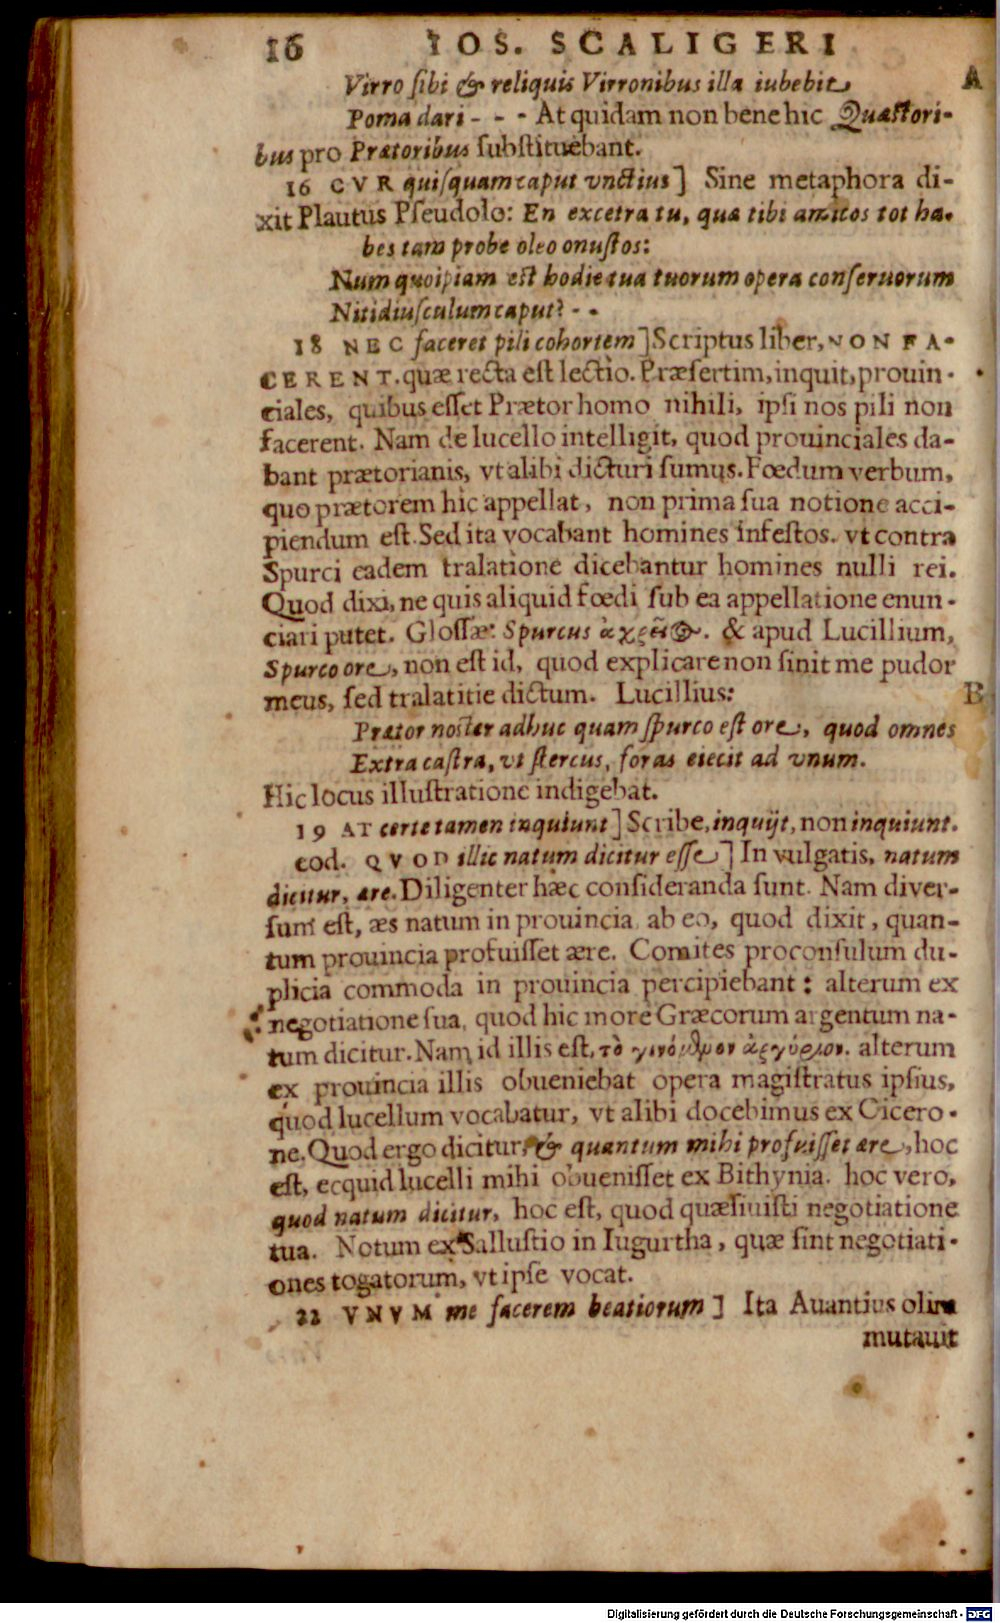 16 IOS. SCALIGERI
Virro ſibi & reliquis Virronibus illa iubebit A
Poma dari - - - At quidam non bene hic Quæſtori-
bus pro Prætoribus ſubſtituebant.
16 CVR quiſquam caput vnctius] Sine metaphora di-
xit Plautus Pſeudolo: En excetra tu, quæ tibi amicos tot ha-
bes tam probe oleo onuſtos:
Num quoipiam eſt hodie tua tuorum opera conſeruorum
Nitidiuſculum caput? - -
18 NEC faceret pili cohortem] Scriptus liber, NON FA-
CERENT. quæ recta eſt lectio. Præſertim, inquit, prouin-
ciales, quibus eſſet Prætor homo nihili, ipſi nos pili non
facerent. Nam de lucello intelligit, quod prouinciales da-
bant prætorianis, vt alibi dicturi ſumus. Fœdum verbum,
quo prætorem hic appellat, non prima ſua notione acci-
piendum eſt. Sed ita vocabant homines infeſtos. vt contra
Spurci eadem tralatione dicebantur homines nulli rei.
Quod dixi, ne quis aliquid fœdi ſub ea appellatione enun-
ciari putet. Gloſſæ: Spurcus ἀχρεῖος. & apud Lucillium,
Spurco ore, non eſt id, quod explicare non ſinit me pudor
meus, ſed tralatitie dictum. Lucillius: B
Prætor noſter adhuc quam ſpurco eſt ore, quod omnes
Extra caſtra, vt ſtercus, foras eiecit ad vnum.
Hic locus illuſtratione indigebat.
19 AT certe tamen inquiunt] Scribe, inquijt, non inquiunt.
eod. QVOD illic natum dicitur eſſe] In vulgatis, natum
dicitur, ære. Diligenter hæc conſideranda ſunt. Nam diuer-
ſum eſt, æs natum in prouincia ab eo, quod dixit, quan-
tum prouincia profuiſſet ære. Comites proconſulum du-
plicia commoda in prouincia percipiebant: alterum ex
negotiatione ſua, quod hic more Græcorum argentum na-
tum dicitur. Nam id illis eſt, τὸ γινόμενον ἀργύριον. alterum
ex prouincia illis obueniebat opera magiſtratus ipſius,
quod lucellum vocabatur, vt alibi docebimus ex Cicero-
ne. Quod ergo dicitur, & quantum mihi profuiſſet ære, hoc
eſt, ecquid lucelli mihi obueniſſet ex Bithynia. hoc vero,
quod natum dicitur, hoc eſt, quod quæſiuiſti negotiatione
tua. Notum ex Salluſtio in Iugurtha, quæ ſint negotiati-
ones togatorum, vt ipſe vocat.
22 VNVM me facerem beatiorum] Ita Auantius olim
mutauit
Digitalisierung gefördert durch die Deutsche Forschungsgemeinschaft - DFG